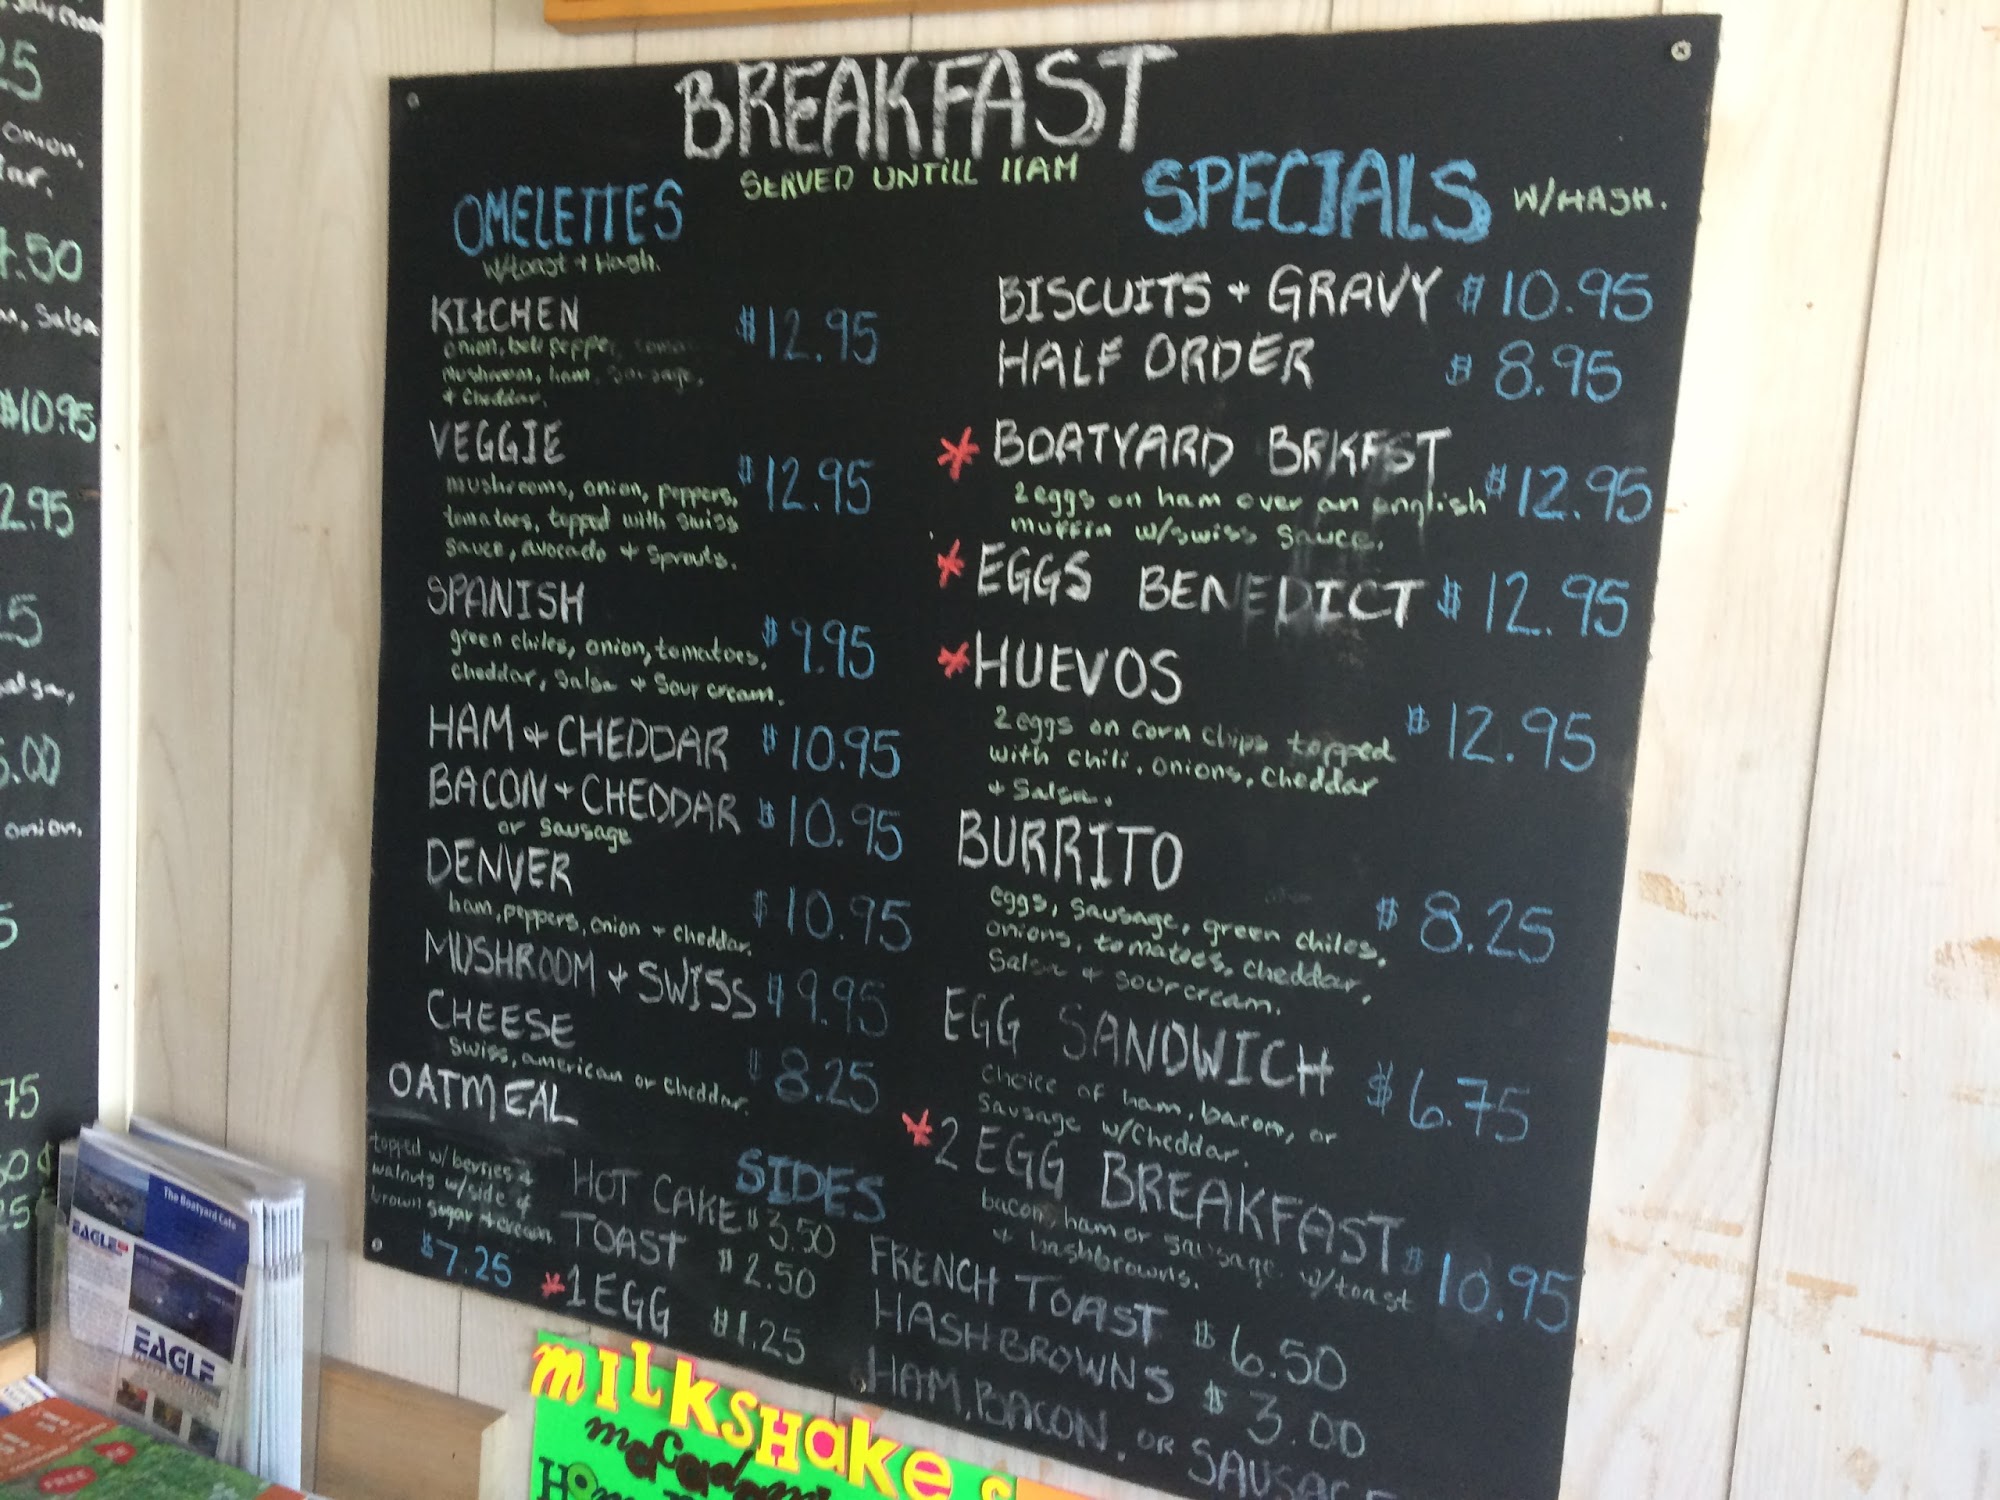 BREAKFAST
SERVED UNTILL 11AM
OMELETTES
W/toast + Hash.
KITCHEN $12.95
onion, bell pepper,
mushroom, ham, Sausage,
+ Cheddar.
VEGGIE
$12.95
mushrooms, onion, peppers,
tomatoes, topped with Swiss
Sauce, avocado + Sprouts.
SPANISH
$9.95
green chiles, onion, tomatoes,
cheddar, Salsa + Sour cream.
HAM + CHEDDAR $10.95
BACON + CHEDDAR $10.95
or Sausage
DENVER
$10.95
ham, peppers, onion + cheddar.
MUSHROOM + SWISS $9.95
CHEESE
$8.25
Swiss, american or Cheddar.
OATMEAL
topped w/berries +
walnuts w/side of
brown sugar + cream.
$7.25
SIDES
HOT CAKE $3.50
TOAST $2.50
*1 EGG $1.25
FRENCH TOAST $6.50
HASHBROWNS $3.00
HAM, BACON, OR
SPECIALS W/HASH.
BISCUITS + GRAVY $10.95
HALF ORDER $8.95
* BOATYARD BRKFST
$12.95
2 eggs on ham over an english
muffin w/swiss Sauce.
* EGGS BENEDICT $12.95
* HUEVOS
$12.95
2 eggs on corn chips topped
with chili, onions, cheddar
+ Salsa.
BURRITO
$8.25
eggs, sausage, green chiles,
onions, tomatoes, cheddar,
Salsa + sour cream.
EGG SANDWICH
$6.75
choice of ham, bacon, or
Sausage w/Cheddar.
* 2 EGG BREAKFAST
$10.95
bacon, ham or sausage w/toast
+ hashbrowns.
25
Onion,
.50
Salsa
$10.95
2.95
.00
onion,
75
25
The Boatyard Cafe
EAGLE
EAGLE
FREE
MILKSHAKE